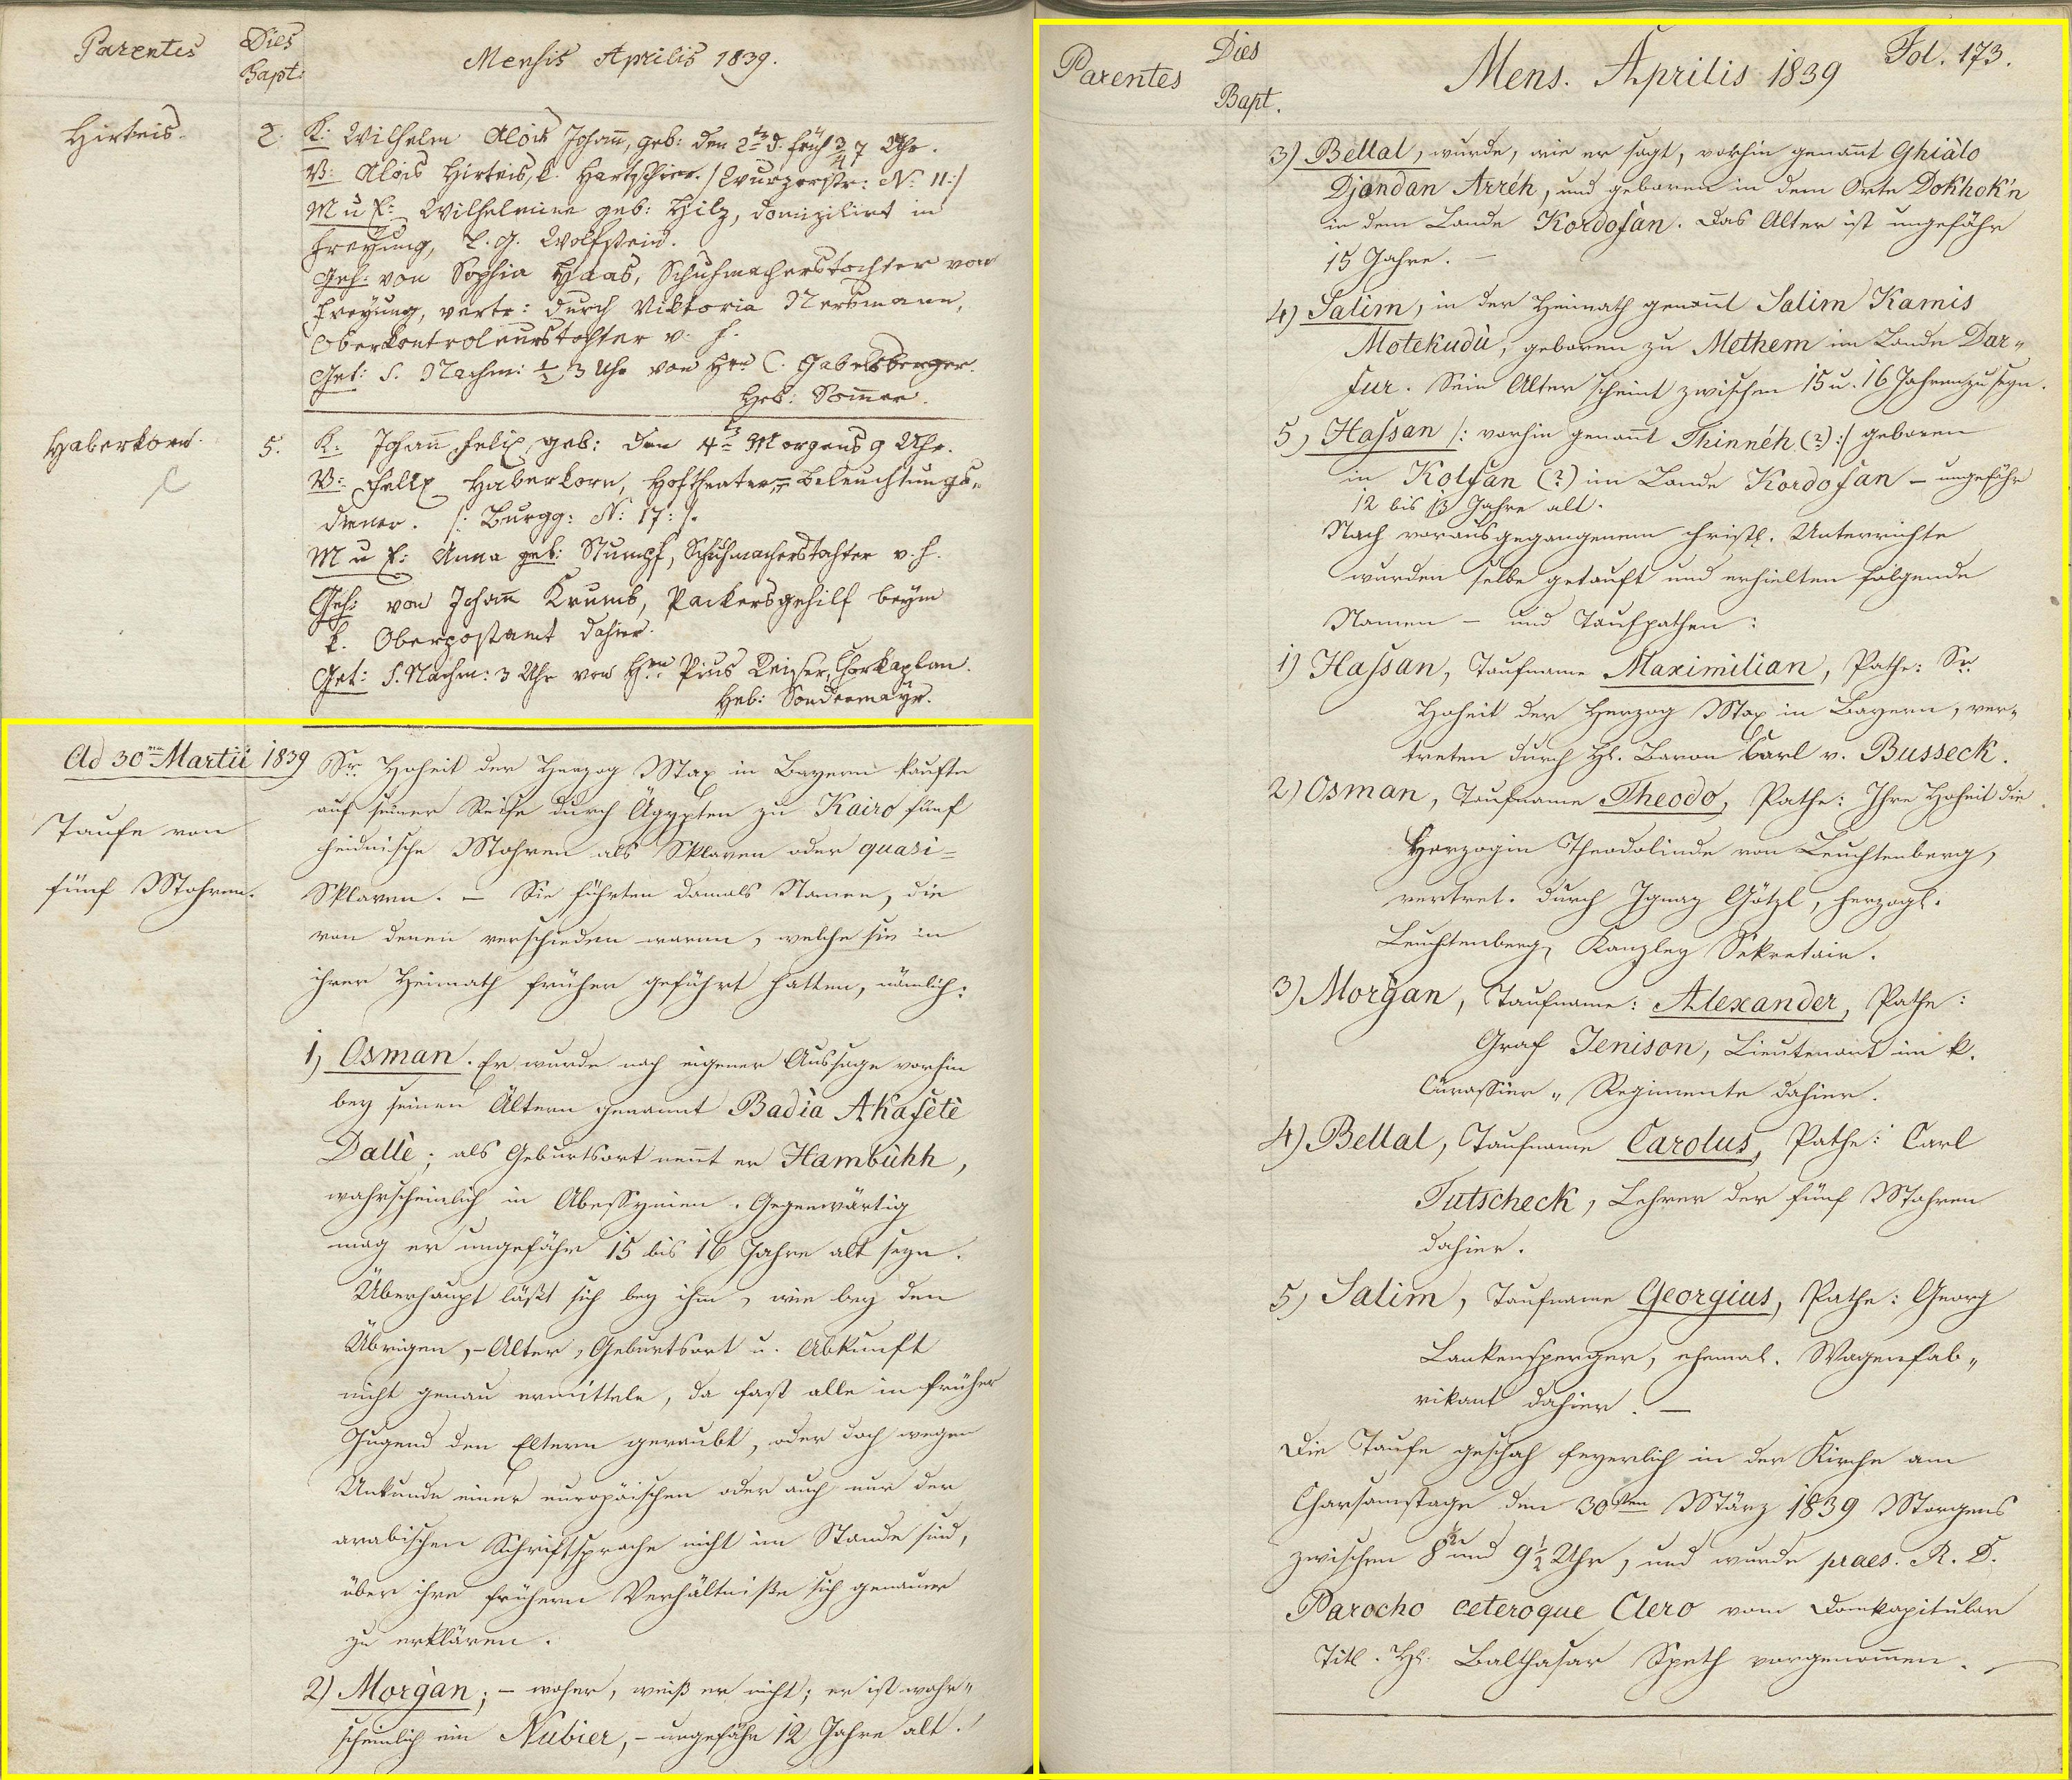 Parentes
Dies
Bapt:
Mensis Aprilis 1839.
Hirteis.
2.
K: Wilhelm Alois Johañ, geb: den 2t d. früh 3/4 7 Uhr.
V: Alois Hirteis, k. Hartschier. /: Wurzerstr: N: 11 :/
M u E: Wilhelmine geb: Hilz, domizilirt in
Freyung, L. G. Wolfstein.
Geh: von Sophia Haas, Schuhmacherstochter von
Freyung, vertr: durch Viktoria
Oberkontroleurstochter v. h.
Get: d. Nachm: 1/2 3 Uhr von Hrn C. Gabelsberger.
Heb: Som̄er.
Haberkorn.
5.
K: Johañ Felix geb: den 4t Morgens 9 Uhr.
V: Felix Haberkorn, Hoftheater-Beleuchtungs-
diener. /: Burgg: N: 17 :/.
M u E: Anna geb: Stumpf, Schuhmacherstochter v. h.
Geh: von Johañ Krumb, Packersgehilf beym
k. Oberpostamt dahier.
Get: d. Nachm: 3 Uhr von Hrn Pius Reiser, Chorkaplan.
Heb: Sondermayr.
Ad 30m Martii 1839
Taufe von
fünf Mohren.
Sr. Hoheit der Herzog Max in Bayern kaufte
auf seiner Reise durch Ägypten zu Kairo fünf
heidnische Mohren als Sklaven oder quasi=
Sklaven. – Sie führten damals Namen, die
von denen verschieden waren, welche sie in
ihrer Heimath früher geführt hatten, nämlich:
1) Osman. Er wurde nach eigener Aussage vorhin
bey seinen Ältern genannt Badia Akafètè
Dallè; als Geburtsort nennt er Hambùhh,
wahrscheinlich in Abessynien. Gegenwärtig
mag er ungefähr 15 bis 16 Jahre alt seyn.
Überhaupt läßt sich bey ihm, wie bey den
Übrigen, – Alter, Geburtsort u. Abkunft
nicht genau ermitteln, da fast alle in früher
Jugend den Eltern geraubt, oder doch wegen
Unkunde einer europäischen oder auch nur der
arabischen Schriftsprache nicht im Stande sind,
über ihre frühern Verhältniße sich genauer
zu erklären.
2) Morgàn; – woher, weiß er nicht; er ist wahr„
scheinlich ein Nubier, – ungefähr 12 Jahre alt.
Parentes
Dies
Bapt.
Mens. Aprilis 1839
Fol. 173.
3) Bellal, wurde, wie er sagt, vorhin genañt Ghiàlo
Djondan Arréh, und geboren in dem Orte Dok'hok'n
in dem Lande Kordofàn. Das Alter ist ungefähr
15 Jahre. –
4) Salim, in der Heimath genañt Salim Kamis
Motekudù, geboren zu Methem im Lande Dar„
fur. Sein Alter scheint zwischen 15 u. 16 Jahren zu seyn.
5) Hassan /: vorhin genañt Thinnéh (?) :/ geboren
in Kolfan (?) im Lande Kordofan – ungefähr
12 bis 13 Jahre alt.
Nach vorausgegangenem christl. Unterrichte
wurden selbe getauft und erhielten folgende
Namen – und Taufpathen:
1) Hassan, Taufname Maximilian, Pathe: Sr.
Hoheit der Herzog Max in Bayern, ver„
treten durch H. Baron Carl v. Busseck.
2) Osman, Taufname Theodo, Pathe: Ihre Hoheit die
Herzogin Theodolinde von Leuchtenberg,
vertret. durch Ignaz Götzl, herzogl.
Leuchtenberg, Kanzley Sekretair.
3) Morgan, Taufname: Alexander, Pathe:
Graf Jenison, Lieutenant im k.
Cürassier „ Regimente dahier.
4) Bellal, Taufname Carolus, Pathe: Carl
Tutscheck, Lehrer der fünf Mohren
dahier.
5) Salim, Taufname Georgius, Pathe: Georg
Lankensperger, ehemal. Wagenfab„
rikant dahier. –
Die Taufe geschah feyerlich in der Kirche am
Charsamstage den 30sten März 1839 Morgens
zwischen 8 1/2 und 9 1/2 Uhr, und wurde praes. R. D.
Parocho ceteroque Clero vom Domkapitular
Titl. H. Balthasar Speth vorgenom̄en. –